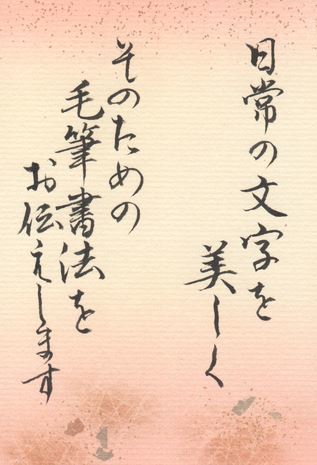 日常の文字を
美しく
そのための
毛筆書法を
お伝えします